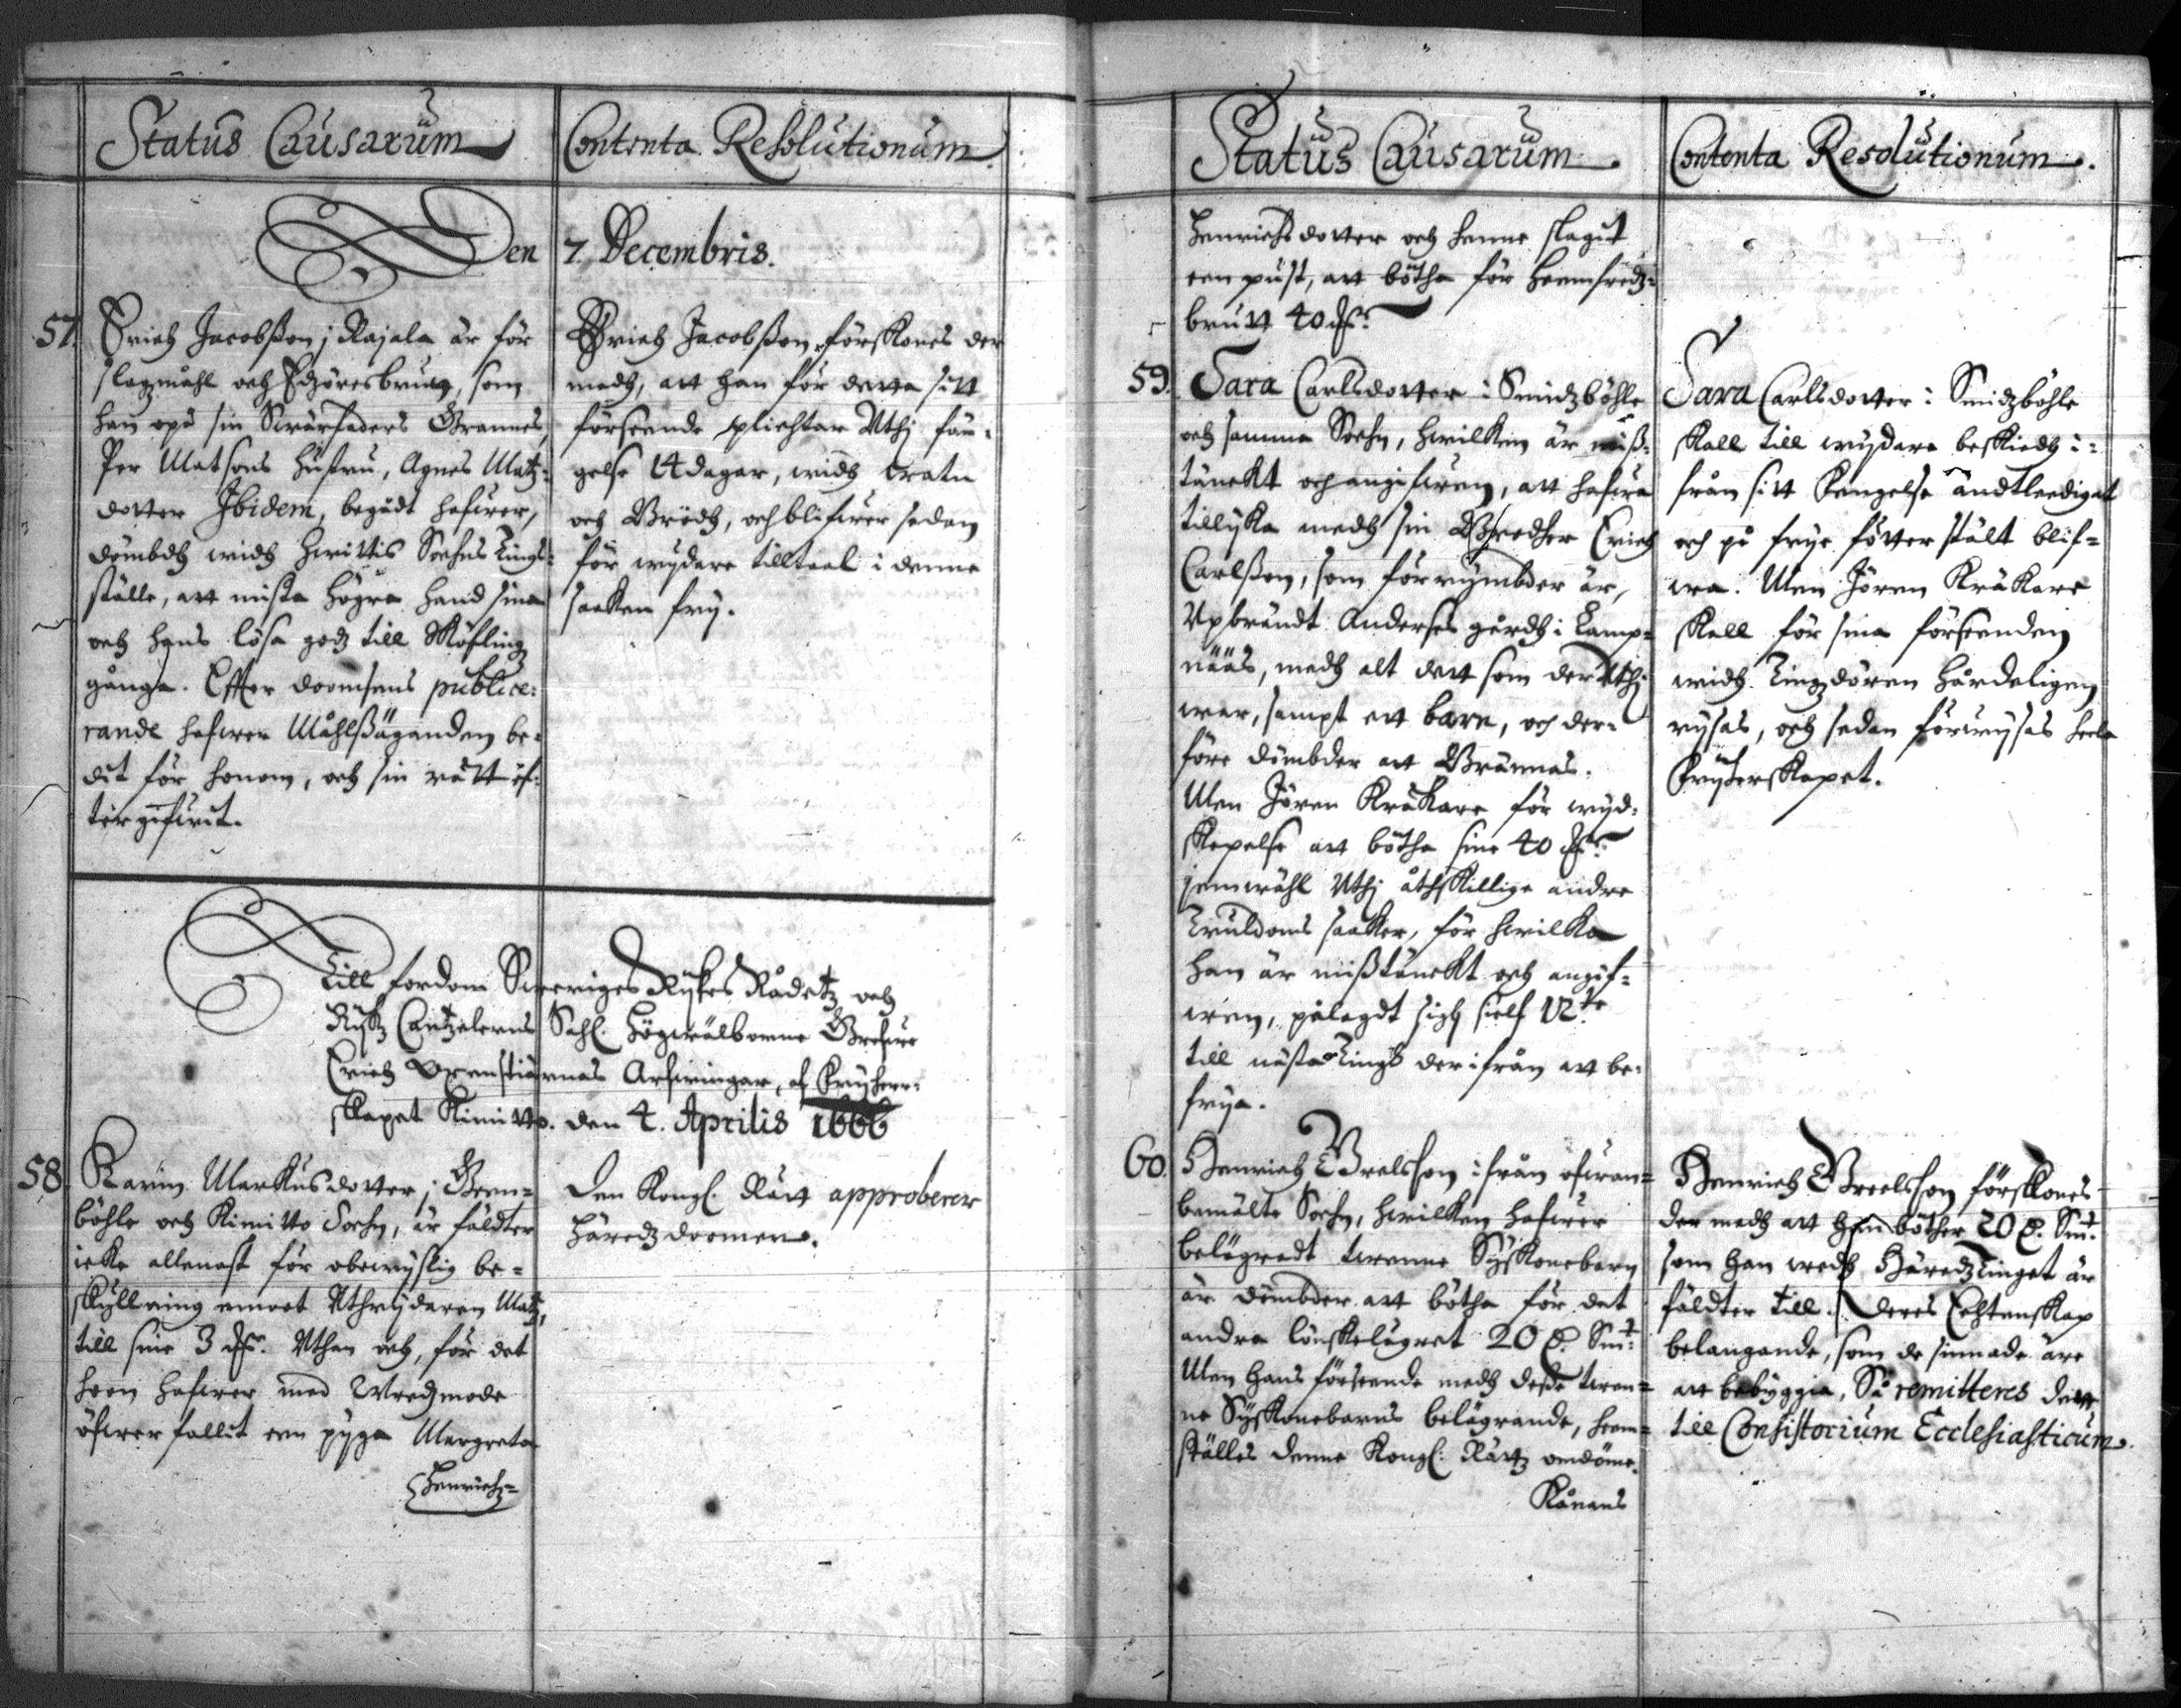 Status Causarum
Contenta Resolutionum.
Den 7. Decembris.
57.
Erich Jacobßon j Rajala är för
slagzmåhl och Edzöresbrutt, som
han opå sin Swärfaders Grannes,
Per Matsons hustru, Agnes Matz-
dotter Ibidem, begådt hafwer,
dömbdh widh Hwittis Sochns Tings-
ställe, att mista högra hand sina
och hans lösa godz till Sköfling
gånga. Effter doomsens publice-
rande hafwer Måhlßäganden be-
dit för honom, och sin rätt ef-
tergifwit.
Erich Jacobßon förskones der
medh, att han för detta sitt
förseende plichtar Uthj fän-
gelse 14 dagar, widh watn
och Brödh, och blifwer sedan
för wydare tilltaal i denne
saaken fry.
Till fordom Sweriges Rykes Rådetz och
Rykz Cantzelerns Sahl. Högwälborne Grefwe
Erich Oxenstiärnas Arfwingar, af Fryherr-
skapet Kimitto. den 4. Aprilis 1666
58.
Karin Markusdotter j Green-
böhle och Kimitto Sochn, är fäldter
icke allenast för obewyslig be-
skyllning emoot Uthrydaren Matz,
till sine 3 dlr. Uthan och, för det
hoon hafwer med Wredzmode
öfwerfallit een pyga Margreta
Henrichz-
Den Kongl. Rätt approberer
Häredz doomen.
Status Causarum.
Contenta Resolutionum.
Henrichsdotter och henne slagit
een pust, att bötha för heemfredz-
brutt 40 dlr.
59.
Sara Carlsdotter i Smidzböhle
och samma Sochn, hwilken är miß-
tänckt och angifwen, att hafwa
tillyka medh sin Broder Erich
Carlßon, som förrymbder är,
Upbrändt Anderses gårdh i Lamp-
nääs, medh alt dett som der Uthj
war, sampt ett barn, och der-
före dömbder att Brännas.
Men Jören Kråkare för wyd-
skepelse att bötha sine 40 dlr.
jemwähl Uthj åthskillige andre
Truldoms saaker, för hwilka
han är mißtänckt och angif-
wen, pålagdt sigh sielf 12te
till nästa Tingh der ifrån att be-
frya.
Sara Carlsdotter i Smidzböhle
skall till wydare beskiedh i-
från sitt Fengelse ändtleedigat
och på frye fötter stält blif-
wa. Men Jören Kråkare
skall för sina förseenden
widh Tingzdören hårdeligen
rysas, och sedan förwysas heela
Fryherskapet.
60.
Henrich Grelsson ifrån ofwan-
bemälte Sochn, hwilken hafwer
belägradt twenne Syskonebarn
är dömbder att bötha för det
andra lönskelägret 20 dr. Smt.
Men hans förseende medh deße twen-
ne Syskonebarns belägrande, heem-
ställes denne Kongl. Rätz omdöme.
Konans
Henrich Greelsson förskones
der medh att han böther 20 dr. Smt.
som han wedh Häredztinget är
fäldter till. Deres Echtenskap
belangande, som de sinnade äre
att bebyggia, Så remitteres dett
till Consistorium Ecclesiasticum.